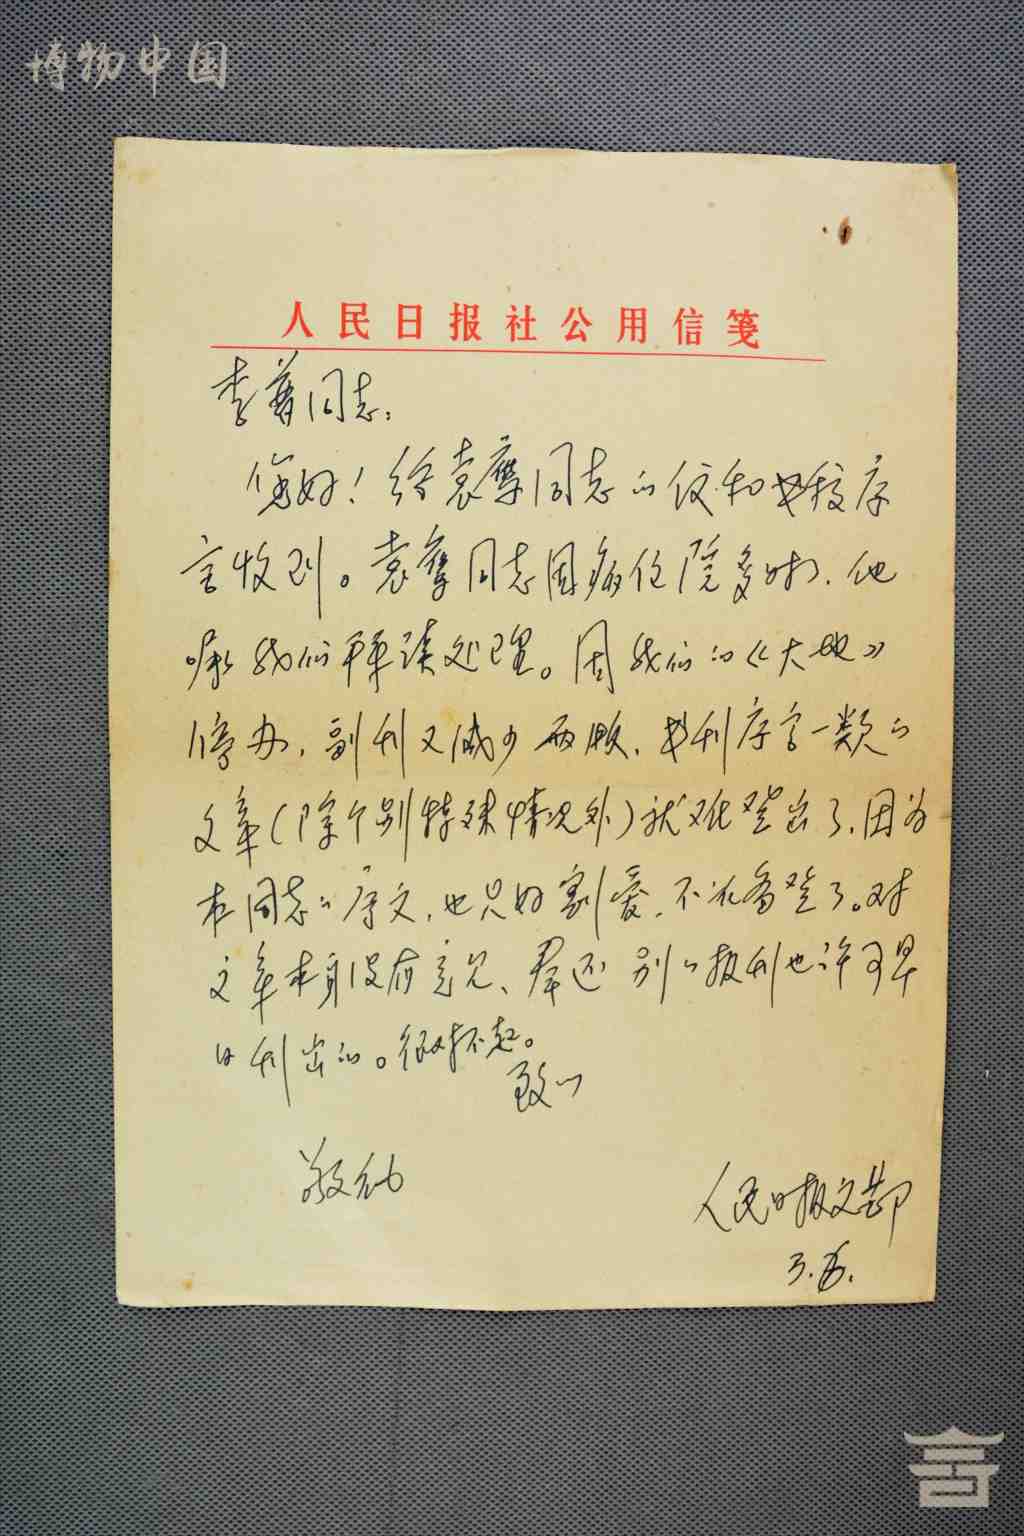 博物中国
人民日报社公用信笺
李葺同志：
您好！给袁鹰同志的信和书稿序
言收到。袁鹰同志因病住院多时，他
嘱我们再读处理。因我们的《大地》
停办，副刊又减少两版，书刊序言一类的
文章（除个别特殊情况外）就难登出了，因为
本同志的序文，也只好割爱，不准备登了。对
文章本身没有意见，奉还 别的报刊也许可早
日刊出的。很对不起。
致以
敬礼
人民日报文艺部
3.6.